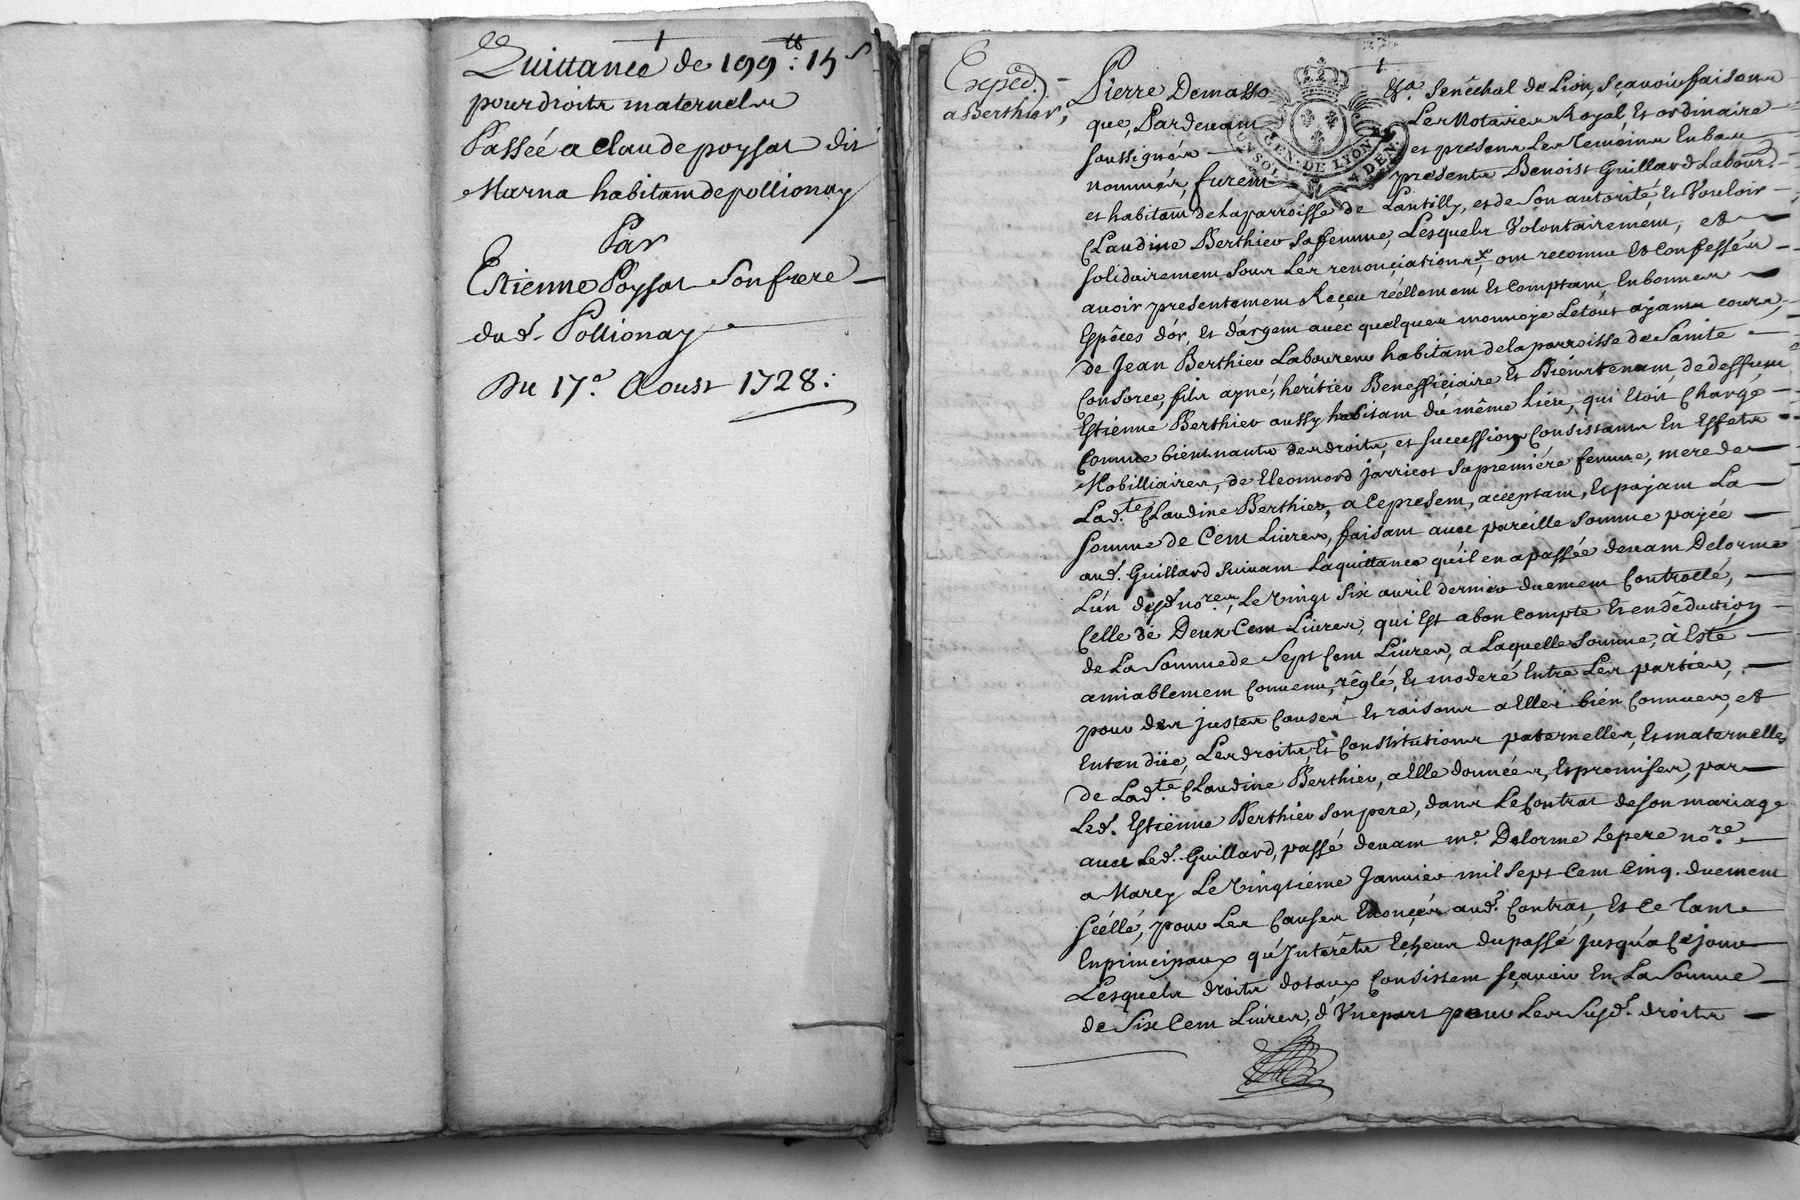 Quittance de 199 ₶: 15 s
pour droits maternels
Passée a claude poysat dit
Marna habitant de pollionay
Par
Estienne Poysat son frere
dud. Pollionay
Du 17e. Aoust 1728:
Exped.
a Berthier,
Pierre Demasso Esr. Senéchal de Lion, sçavoir faisons
que, Pardevant Les Notaires Royal, et ordinaire
soussignés et presens Les Temoins En bas
nommés, furent presents Benoist Guillard Labour.
et habitant de la parroisse de Lantilly, et de son autorité, et Vouloir
Claudine Berthier sa femme, Lesquels Volontairement, et
solidairement sous Les renonciations, ont reconnu et confessés
avoir presentement Reçeu réellement Et comptant, En bonnes
Espêces d'or, Et d'argent avec quelques monnoye Le tout ayants cours,
de Jean Berthier Laboureur habitant de la parroisse de Sainte
Consorce, fils ayné, heritier Benefficiaire Et Bientenant, de deffunt
Estienne Berthier aussy habitant du même Lieu, qui Etoit Chargé
Comme bientenants des droits, et succession Consistants En Effets
Mobilliaires, de Eleonnord Jarricot sa premiére femme, mere de
Lad.te Claudine Berthier, a Ce present, acceptant, Et payant La
somme de Cent Livres, faisant avec pareille somme payée
aud. Guillard suivant La quittance qu'il en a passée devant Delorme
L'un desd. no.res, Le vingt six avril dernier duement Controllé,
Celle de Deux Cent Livres, qui Est a bon compte Et en dêduction
de La somme de Sept Cent Livres, a Laquelle somme, à Esté
amiablement Convenu, rêglé, Et moderé Entre Les parties,
pour des justes Causes Et raisons a Elles bien Connues, et
Entendüe, Les droits, Et Constitutions paternelles, Et maternelles
de Lad.te Claudine Berthier, a Elle données, Et promises, par
Led. Estienne Berthier son pere, dans Le Contrat de son mariage
avec Led. Guillard, passé devant me. Delorme Le pere no.re
a Marcy Le vingtiême Janvier mil sept Cent Cinq. duement
scéllé, pour Les Causes Enoncées aud. Contrat, Et Ce tant
En principaux qu'Interêts Echeus du passé jusqu'a Ce jour
Lesquels droits dotaux Consistent sçavoir En La somme
de Six Cent Livres, d'Une part pour Les Susd. droits
GEN. DE LYON